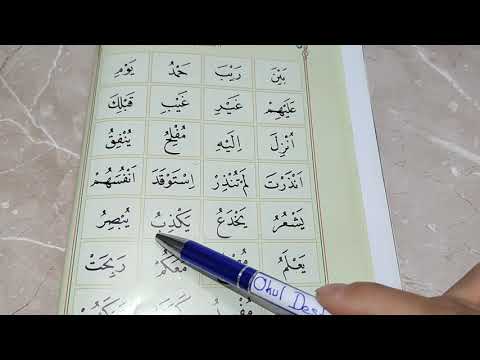 بَيْنَ رَيْبَ حَمْدُ يَوْمِ
عَلَيْهِمْ غَيْرِ غَيْبِ قَبْلِكَ
اُنْزِلَ اِلَيْهِ مُفْلِحُ يُنْفِقُ
اَنْذَرْتَ لَمْ تُنْذِرْ اِسْتَوْقَدَ اَنْفُسَهُمْ
يَشْعُرُ يَخْدَعُ يَكْذِبُ يُبْصِرُ
يَعْلَمُ مَعَكُمْ رَبِحَتْ
Okul Des